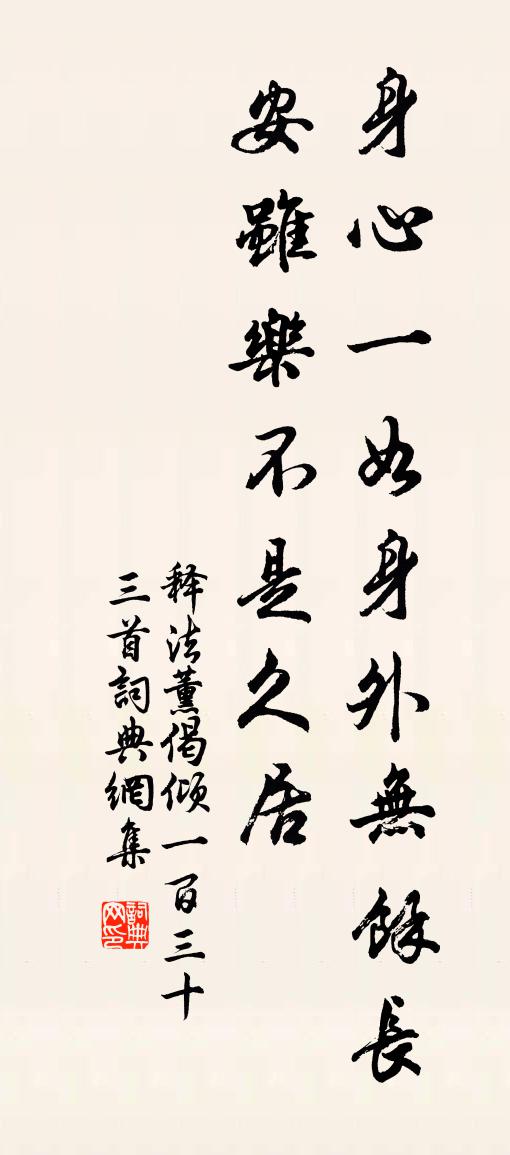 身心一如身外無餘長
安雖樂不是久居
释法薰偈倾一百三十
三首詞典網集
詞典網印